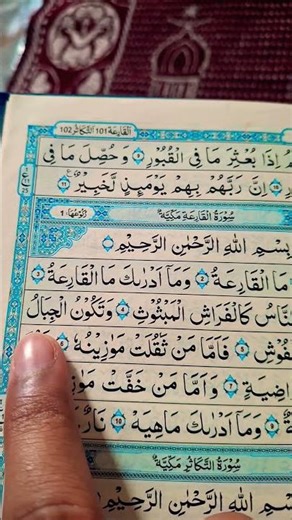 القارعة 101 التكاثر 102
اِذَا بُعْثِرَ مَا فِى الْقُبُوْرِ ۙ۹ وَحُصِّلَ مَا فِى
اِنَّ رَبَّهُمْ بِهِمْ يَوْمَئِذٍ لَّخَبِيْرٌ ۱۱
سُوْرَةُ الْقَارِعَةِ مَكِّيَّةٌ
بِسْمِ اللّٰهِ الرَّحْمٰنِ الرَّحِيْمِ
مَا الْقَارِعَةُ ۲ وَمَاۤ اَدْرٰىكَ مَا الْقَارِعَةُ ۳
كَالْفَرَاشِ الْمَبْثُوْثِ ۴ وَتَكُوْنُ الْجِبَالُ
فَاَمَّا مَنْ ثَقُلَتْ مَوَازِيْنُهٗ ۶
۷ وَاَمَّا مَنْ خَفَّتْ
وَمَاۤ اَدْرٰىكَ مَاهِيَهْ ۱۰
سُوْرَةُ التَّكَاثُرِ مَكِّيَّةٌ
اللّٰهِ الرَّحْمٰنِ الرَّحِيْمِ